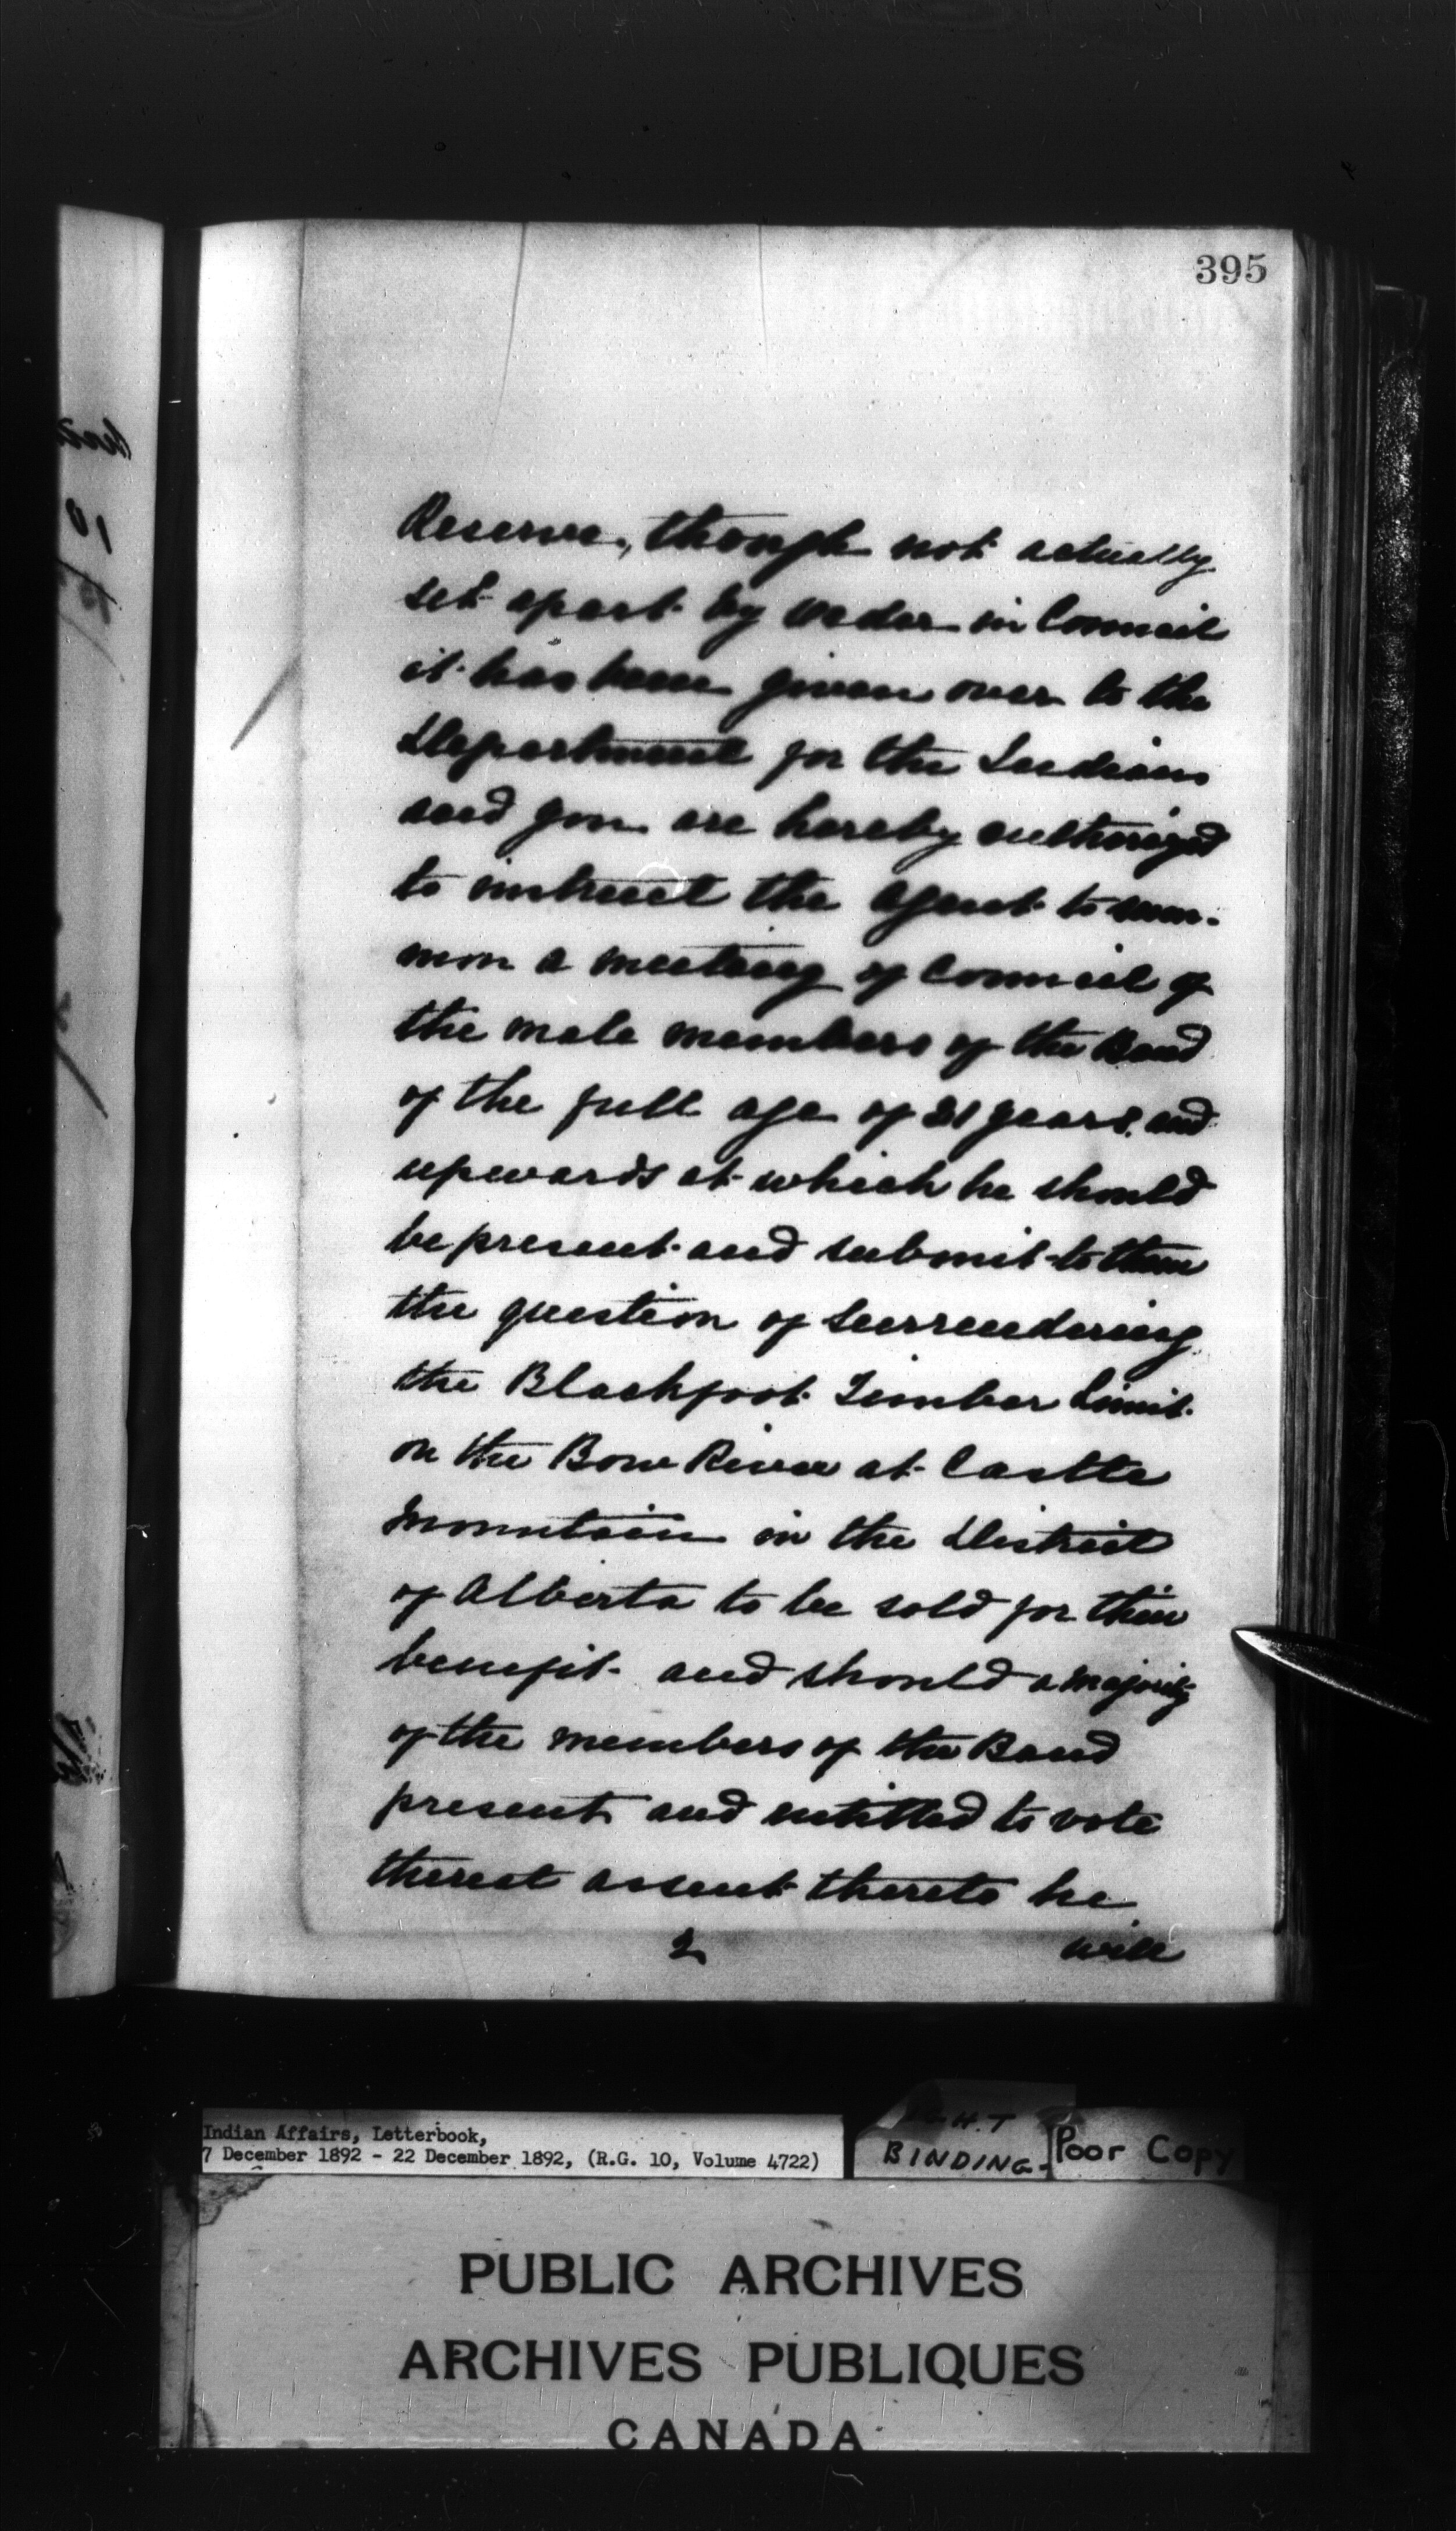 395
Reserve, though not actually
set apart by Order in Council
it has been given over to the
Department for the Indians
and you are hereby authorized
to instruct the agent to sum-
mon a meeting of Council of
the male members of the Band
of the full age of 21 years and
upwards at which he should
be present and submit to them
the question of surrendering
the Blackfoot Timber Limit
on the Bow River at Castle
Mountain in the District
of Alberta to be sold for their
benefit and should a majority
of the members of the Band
present and entitled to vote
thereat assent thereto he
2 will
Indian Affairs, Letterbook,
7 December 1892 - 22 December 1892, (R.G. 10, Volume 4722)
BINDING-
Poor Copy
PUBLIC ARCHIVES
ARCHIVES PUBLIQUES
CANADA